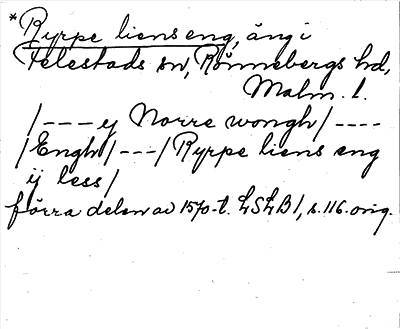 *Ryrpe liens eng, äng i
Felestads sn, Rönnebergs hd,
Malm. l.
/---ij Norre wongh/----
/Engh/---/Ryrpe liens eng
ij less/
förra delen av 1570-t. LSLB 1, s. 116. orig.